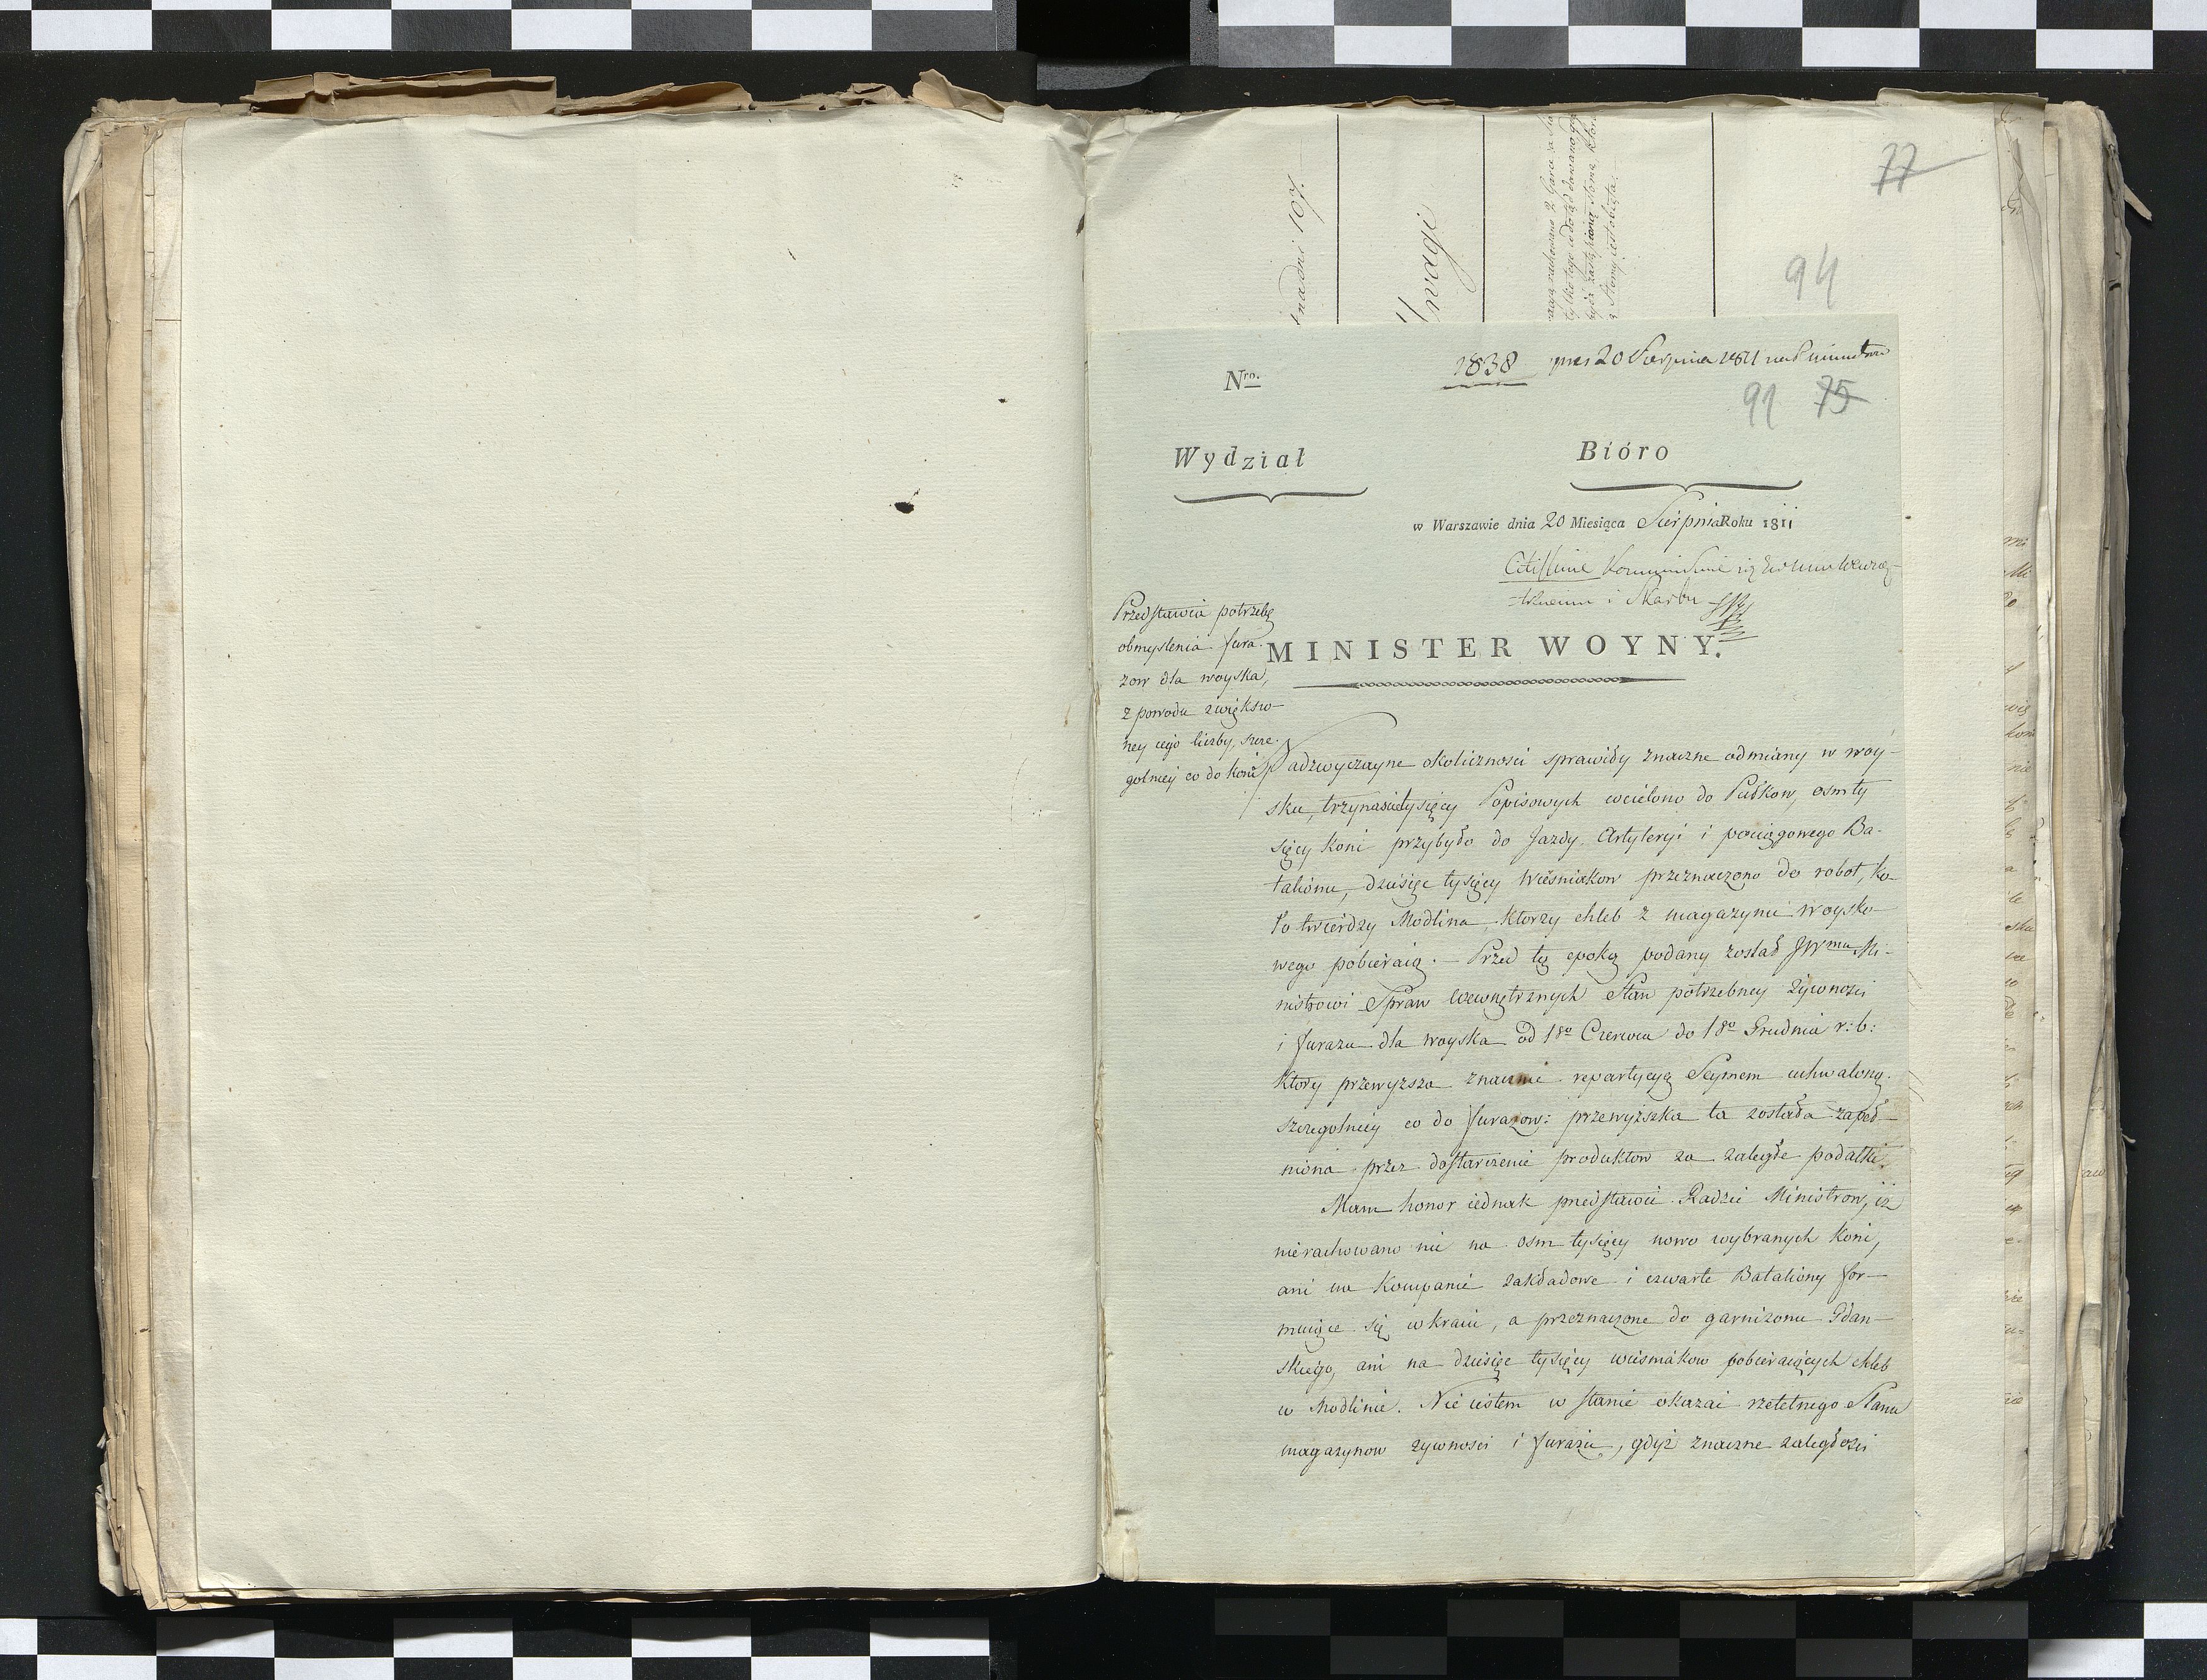 77
94
Uwagi
1838 20 Sierpnia 1811
Nro.
91 75
Wydział Bióro
w Warszawie dnia 20 Miesiąca Sierpnia Roku 1811
i Skarbu
MINISTER WOYNY.
Przedstawia potrzebę
obmyslenia fura-
zow dla woyska,
z powodu zwiększo-
ney iego liczby, szcze-
golniey co do koni
Nadzwyczayne okoliczności sprawiły znaczne odmiany w woy-
sku, trzynaście tysięcy Popisowych wcielono do Pułkow, osm ty
sięcy koni przybyło do Jazdy Artyleryi i pociągowego Ba-
talionu, dziesięc tysięcy Wieśniakow przeznaczono do robot, ko-
ło twierdzy Modlina, ktorzy chleb z magazynu woysko-
wego pobieraią. — Przed tą epoką podany został JWmu Mi-
nistrowi Spraw Wewnętrznych Stan potrzebney żywności
i furazu dla woyska od 1go Czerwca do 1go Grudnia r: b:
ktory przewyższa znacznie repartycyą Seymem uchwaloną.
szczegolniey co do furazow: przewyższka ta została zapeł-
niona przez dostarczenie produktow za zaległe podatki.
Mam honor iednak przedstawić Radzie Ministrow, iż
nierachowano nic na osm tysięcy nowo wybranych koni,
ani na Kompanie zakładowe i czwarte Bataliony for-
muiące się w kraiu, a przeznaczone do garnizonu Gdań-
skiego, ani na dziesięc tysięcy wieśniakow pobieraiących chleb
w Modlinie. Nie iestem w stanie okazać rzetelnego Stanu
magazynow żywności i furażu, gdyż znaczne zaległości